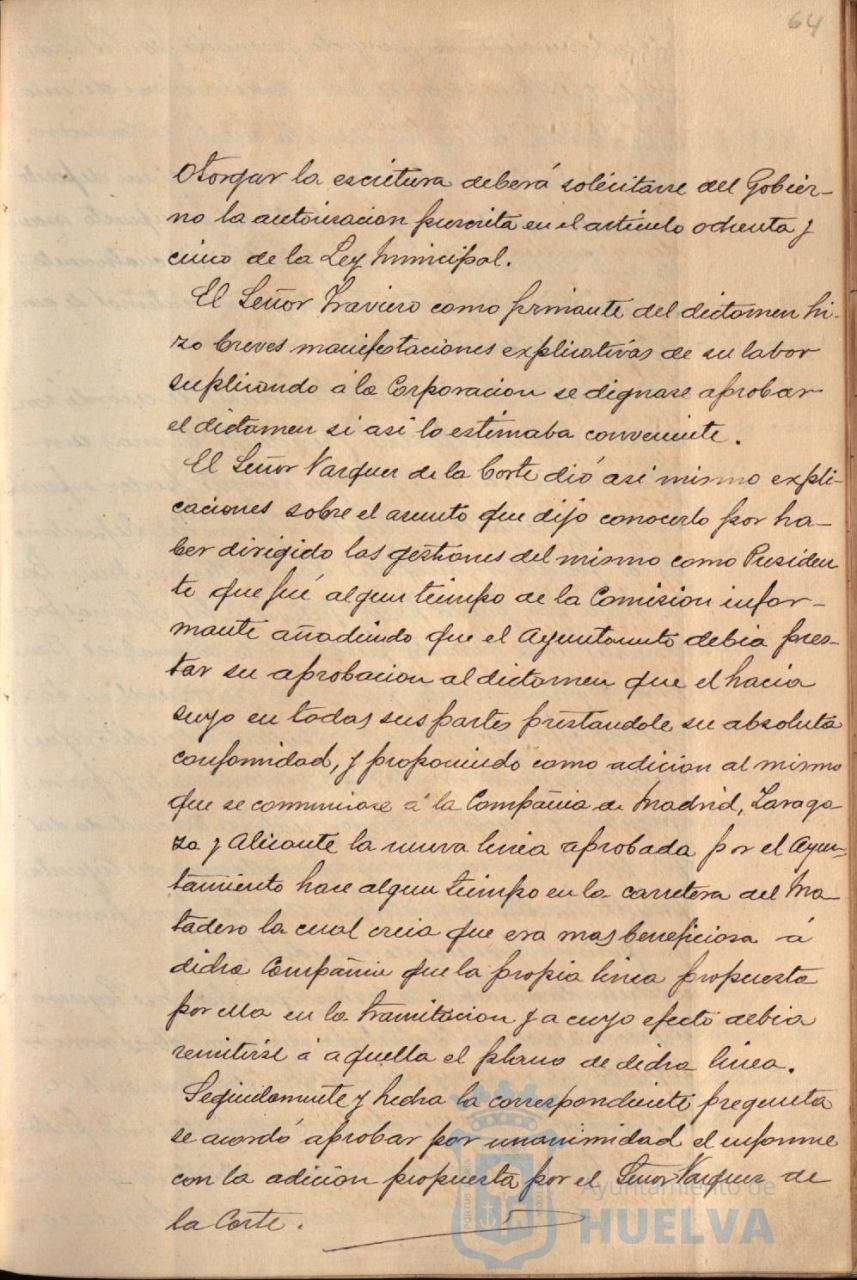 64
otorgar la escritura deberá solicitarse del Gobier-
no la autorizacion prescrita en el artículo ochenta y
cinco de la Ley Municipal.
El Señor Traviero como firmante del dictamen hi-
zo breves manifestaciones explicativas de su labor
suplicando á la Corporacion se dignase aprobar
el dictamen si asi lo estimaba conveniente.
El Señor Vazquez de la Corte dió asi mismo expli-
caciones sobre el asunto que dijo conocerlo por ha-
ber dirigido las gestiones del mismo como Presiden
te que fué algun tiempo de la Comision infor-
mante añadiendo que el Ayuntamto debia pres-
tar su aprobacion al dictamen que el hacia
suyo en todas sus partes prestandole su absoluta
conformidad, y proponiendo como adicion al mismo
que se comunicase á la Compañia de Madrid, Zarago
za y Alicante la nueva linea aprobada por el Ayun-
tamiento hace algun tiempo en la carretera del Ma
tadero la cual creia que era mas beneficiosa á
dicha Compañia que la propia linea propuesta
por ella en la tramitacion y a cuyo efecto debia
remitirse á aquella el plano de dicha linea.
Seguidamente y hecha la correspondiente pregunta
se acordó aprobar por unanimidad el informe
con la adicion propuesta por el Señor Vazquez de
la Corte.
Ayuntamiento de
HUELVA